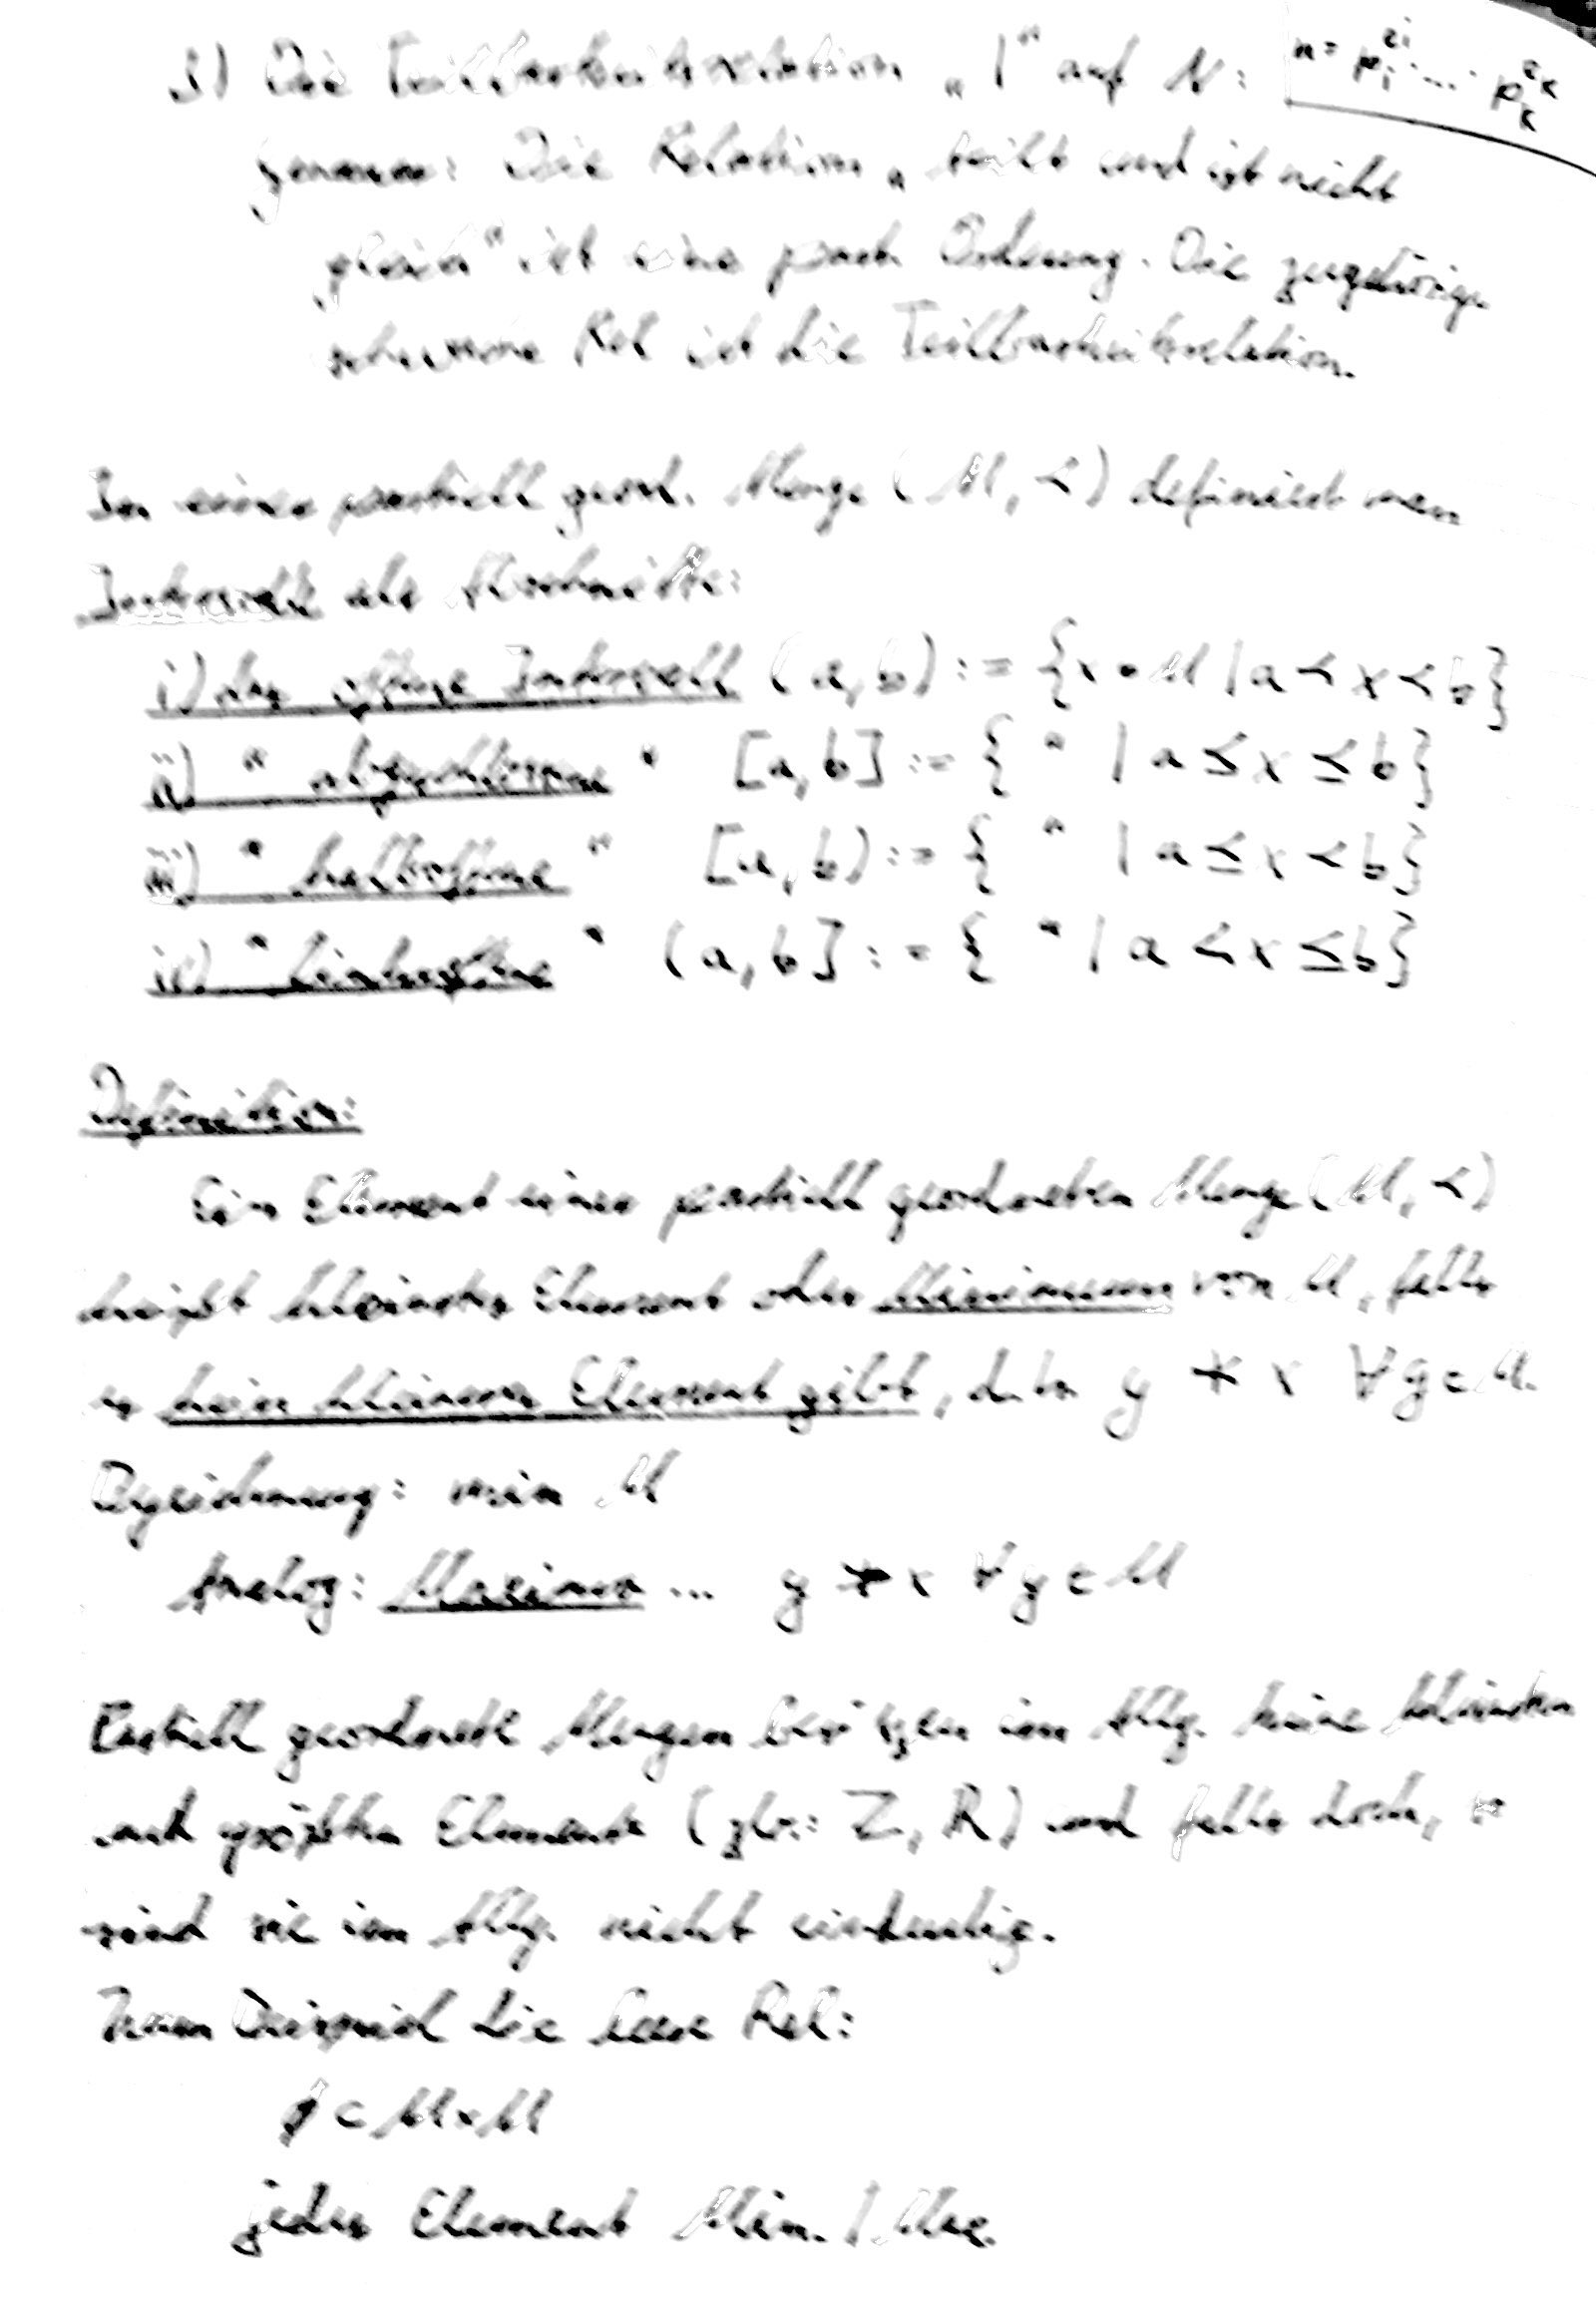 3) Die Teilbarkeitsrelation „|“ auf N:
n = p_1^{e_1} · ... · p_k^{e_k}
genauer: Die Relation „teilt und ist nicht
gleich“ ist eine part. Ordnung. Die zugehörige
schwache Rel ist die Teilbarkeitsrelation.
In einer partiell geord. Menge (M, ≺) definiert man
Intervalle als Abschnitte:
i) das offene Intervall (a, b) := {x ∈ M | a ≺ x ≺ b}
ii) " abgeschlossene " [a, b] := { " | a ≼ x ≼ b}
iii) " halboffene " [a, b) := { " | a ≼ x ≺ b}
iv) " " (a, b] := { " | a ≺ x ≼ b}
Definition:
Ein Element einer partiell geordneten Menge (M, ≺)
heißt kleinstes Element oder Minimum von M, falls
es kein kleineres Element gibt, d.h. y ⊀ x ∀ y ∈ M.
Bezeichnung: min M
Analog: Maximum ... y ⊁ x ∀ y ∈ M
Partiell geordnete Mengen besitzen im Allg. keine kleinsten
und größten Elemente (zb.: Z, R) und falls doch, so
sind sie im Allg. nicht eindeutig.
Zum Beispiel die leere Rel:
∅ ⊂ M × M
jedes Element Min. / Max.